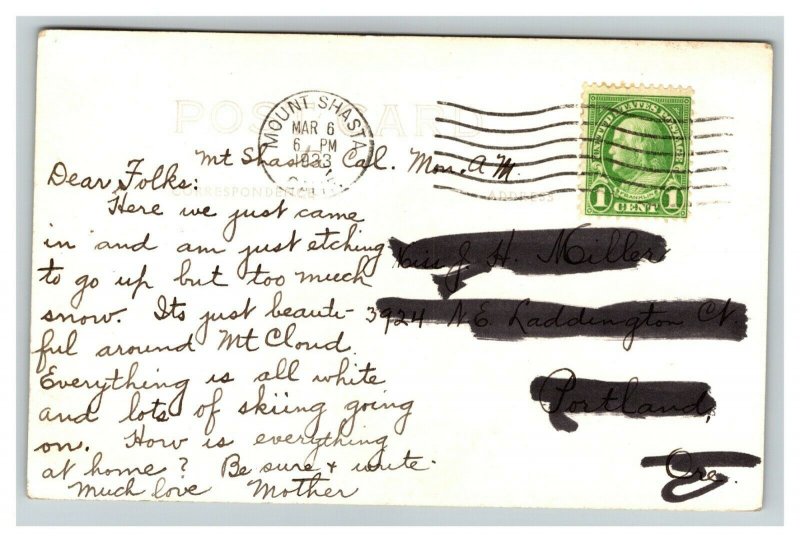 POST CARD
MOUNT SHASTA
MAR 6
6 PM
1933
UNITED STATES POSTAGE
FRANKLIN
1 CENT 1
Mt Shasta Cal. Mon. A.M.
CORRESPONDENCE
ADDRESS
Dear Folks:
Here we just came
in and am just etching
to go up but too much
snow. Its just beauti-
ful around Mt Cloud
Everything is all white
and lots of skiing going
on. How is everything
at home? Be sure + write.
Much love Mother
J H. Miller
3924 N.E. Laddington Ct.
Portland,
Ore.